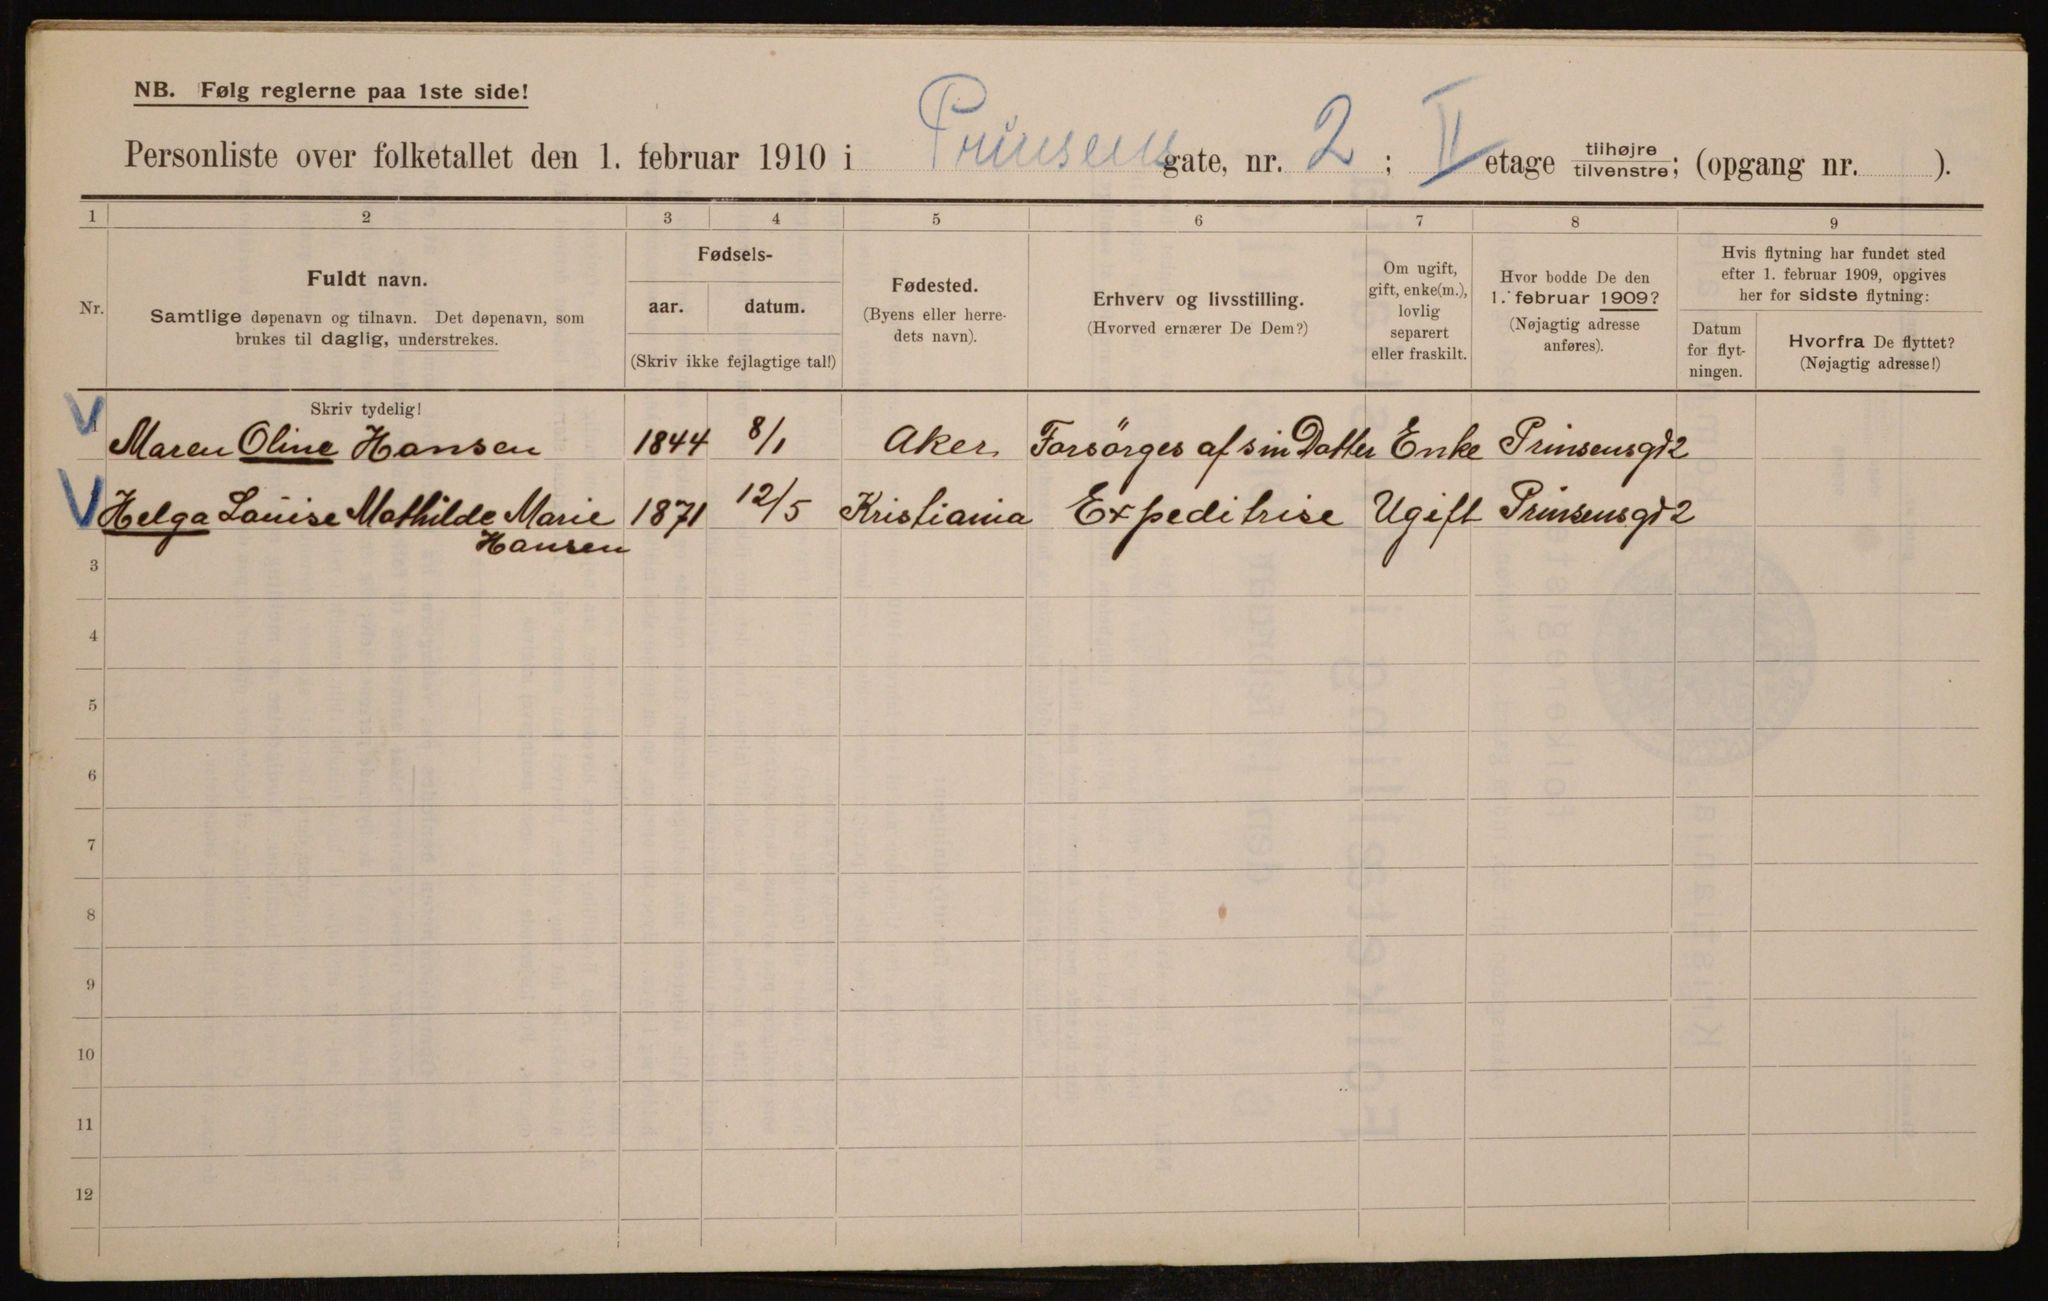 NB. Følg reglerne paa 1ste side!
Personliste over folketallet den 1. februar 1910 i Prinsens gate, nr. 2 ; II etage tilhøjre / tilvenstre; (opgang nr. ).
1 2 3 4 5 6 7 8 9
Nr.
Fuldt navn.
Samtlige døpenavn og tilnavn. Det døpenavn, som
brukes til daglig, understrekes.
Fødsels-
aar. datum.
(Skriv ikke fejlagtige tal!)
Fødested.
(Byens eller herre-
dets navn).
Erhverv og livsstilling.
(Hvorved ernærer De Dem?)
Om ugift,
gift, enke(m.),
lovlig
separert
eller fraskilt.
Hvor bodde De den
1. februar 1909?
(Nøjagtig adresse
anføres).
Hvis flytning har fundet sted
efter 1. februar 1909, opgives
her for sidste flytning:
Datum
for flyt-
ningen.
Hvorfra De flyttet?
(Nøjagtig adresse!)
Skriv tydelig!
Maren Oline Hansen 1844 8/1 Aker Forsörges af sin Datter Enke Prinsensgd 2
Helga Louise Mathilde Marie 1871 12/5 Kristiania Expeditrise Ugift Prinsensgd 2
Hansen
3
4
5
6
7
8
9
10
11
12